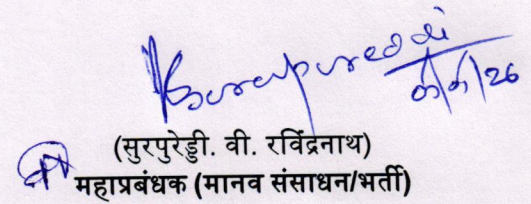 Surapureddi
(सुरपुरेड्डी. वी. रविंद्रनाथ)
महाप्रबंधक (मानव संसाधन/भर्ती)